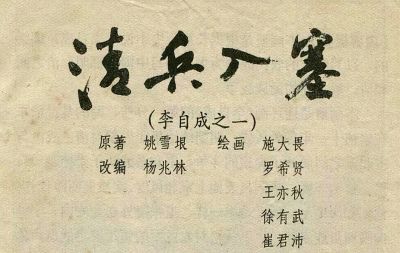 清兵入塞
(李自成之一)
原著 姚雪垠 绘画 施大畏
改编 杨兆林 罗希贤
王亦秋
徐有武
崔君沛